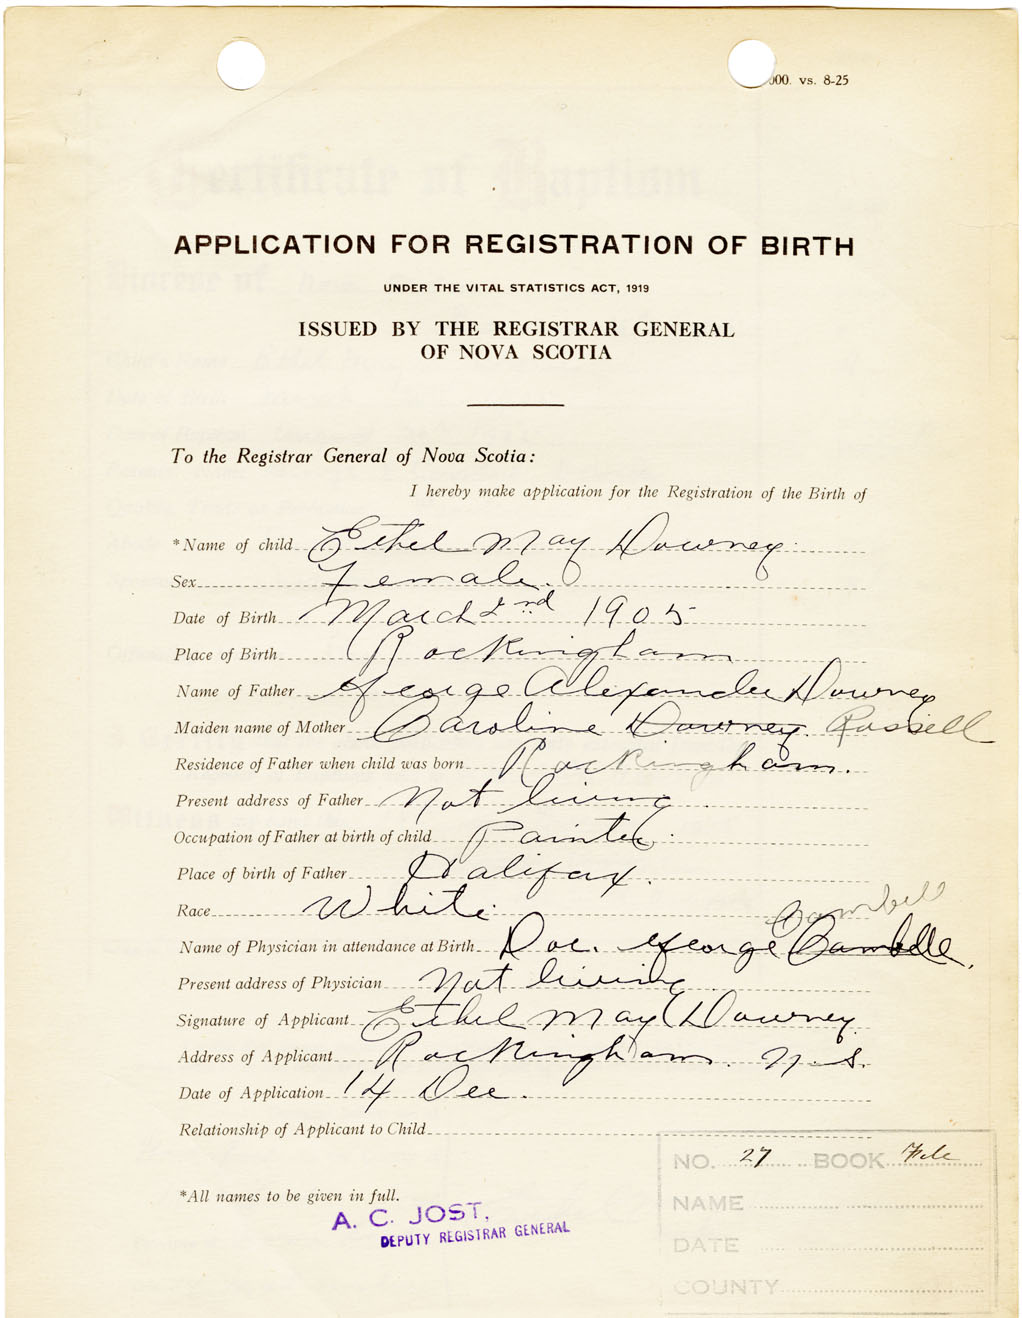 000. vs. 8-25
APPLICATION FOR REGISTRATION OF BIRTH
UNDER THE VITAL STATISTICS ACT, 1919
ISSUED BY THE REGISTRAR GENERAL
OF NOVA SCOTIA
To the Registrar General of Nova Scotia:
I hereby make application for the Registration of the Birth of
*Name of child Ethel May Downey
Sex Female.
Date of Birth March 2nd 1905
Place of Birth Rockingham
Name of Father George Alexander Downey
Maiden name of Mother Caroline Downey. Russell
Residence of Father when child was born Rockingham.
Present address of Father Not living.
Occupation of Father at birth of child Painter.
Place of birth of Father Halifax.
Race White.
Cambell
Name of Physician in attendance at Birth Doc. George Cambelle.
Present address of Physician Not living.
Signature of Applicant Ethel May Downey
Address of Applicant Rockingham. N.S.
Date of Application 14 Dec.
Relationship of Applicant to Child
NO. 27 BOOK File
NAME
*All names to be given in full.
A. C. JOST,
DEPUTY REGISTRAR GENERAL
DATE
COUNTY